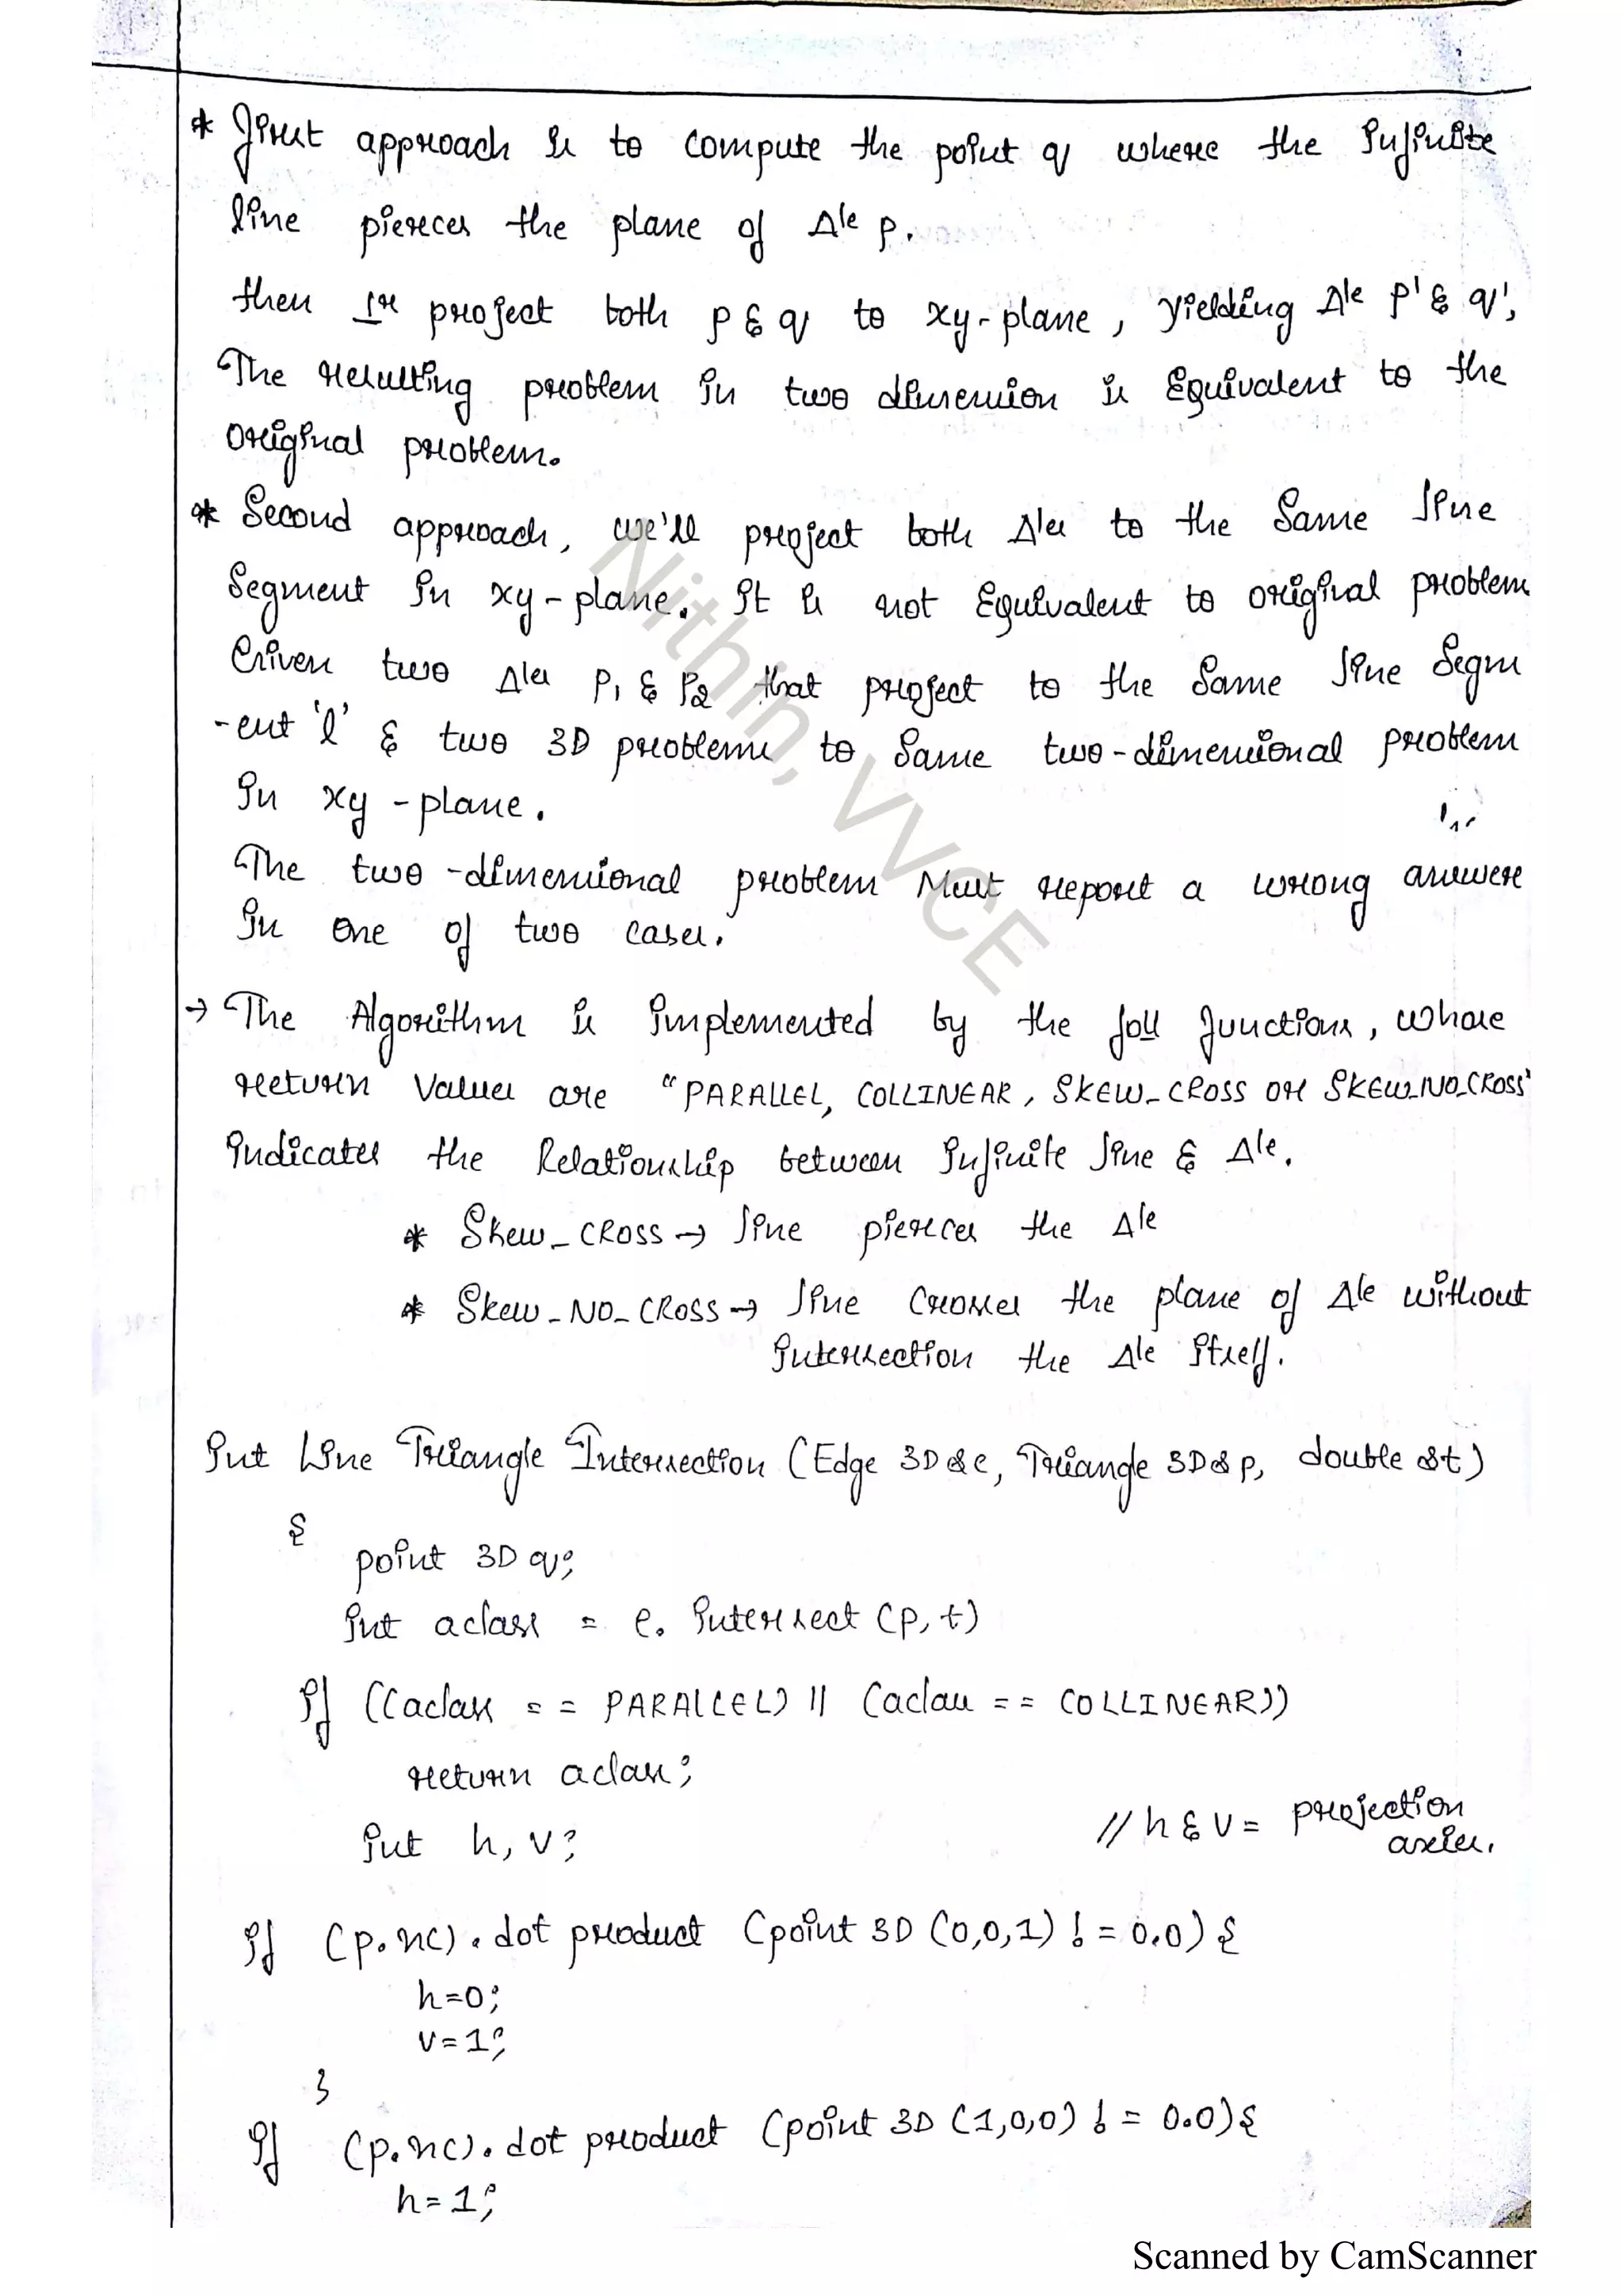 * First approach is to compute the point q where the infinite
line pierces the plane of Δle p.
then In project both p & q to xy-plane, yielding Δle p' & q',
The resulting problem in two dimension is Equivalent to the
original problem.
* Second approach, we'll project both Δles to the Same line
Segment in xy-plane. It is not Equivalent to original problem
Given two Δles P1 & P2 that project to the Same line Segm
-ent 'l' & two 3D problems to Same two-dimensional problem
in xy-plane.
The two-dimensional problem Must report a wrong answer
in one of two cases.
→ The Algorithm is implemented by the foll functions, whose
return values are "PARALLEL, COLLINEAR, SKEW_CROSS or SKEW_NO_CROSS"
indicates the Relationship between infinite line & Δle.
* Skew_CROSS → line pierces the Δle
* Skew_NO_CROSS → line crosses the plane of Δle without
intersection the Δle itself.
int Line Triangle Intersection (Edge 3D&e, Triangle 3D&p, double &t)
{
point 3D q;
int aclass = e. intersect (p, t)
if ((aclass = = PARALLEL) || (aclass = = COLLINEAR))
return aclass;
int h, v;
//h & v = projection
axies.
if (p.n()). dot product (point 3D (0,0,1) != 0.0) {
h=0;
v=1;
}
if (p.n()). dot product (point 3D (1,0,0) != 0.0){
h=1;
Nithin, VVCE
Scanned by CamScanner